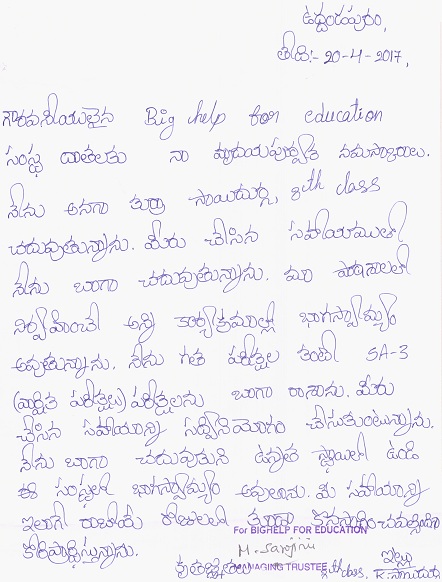 ఉద్దండపురం,
తేది:- 20-4-2017,
గౌరవనీయులైన Big help for education
సంస్థ దాతలకు నా హృదయపూర్వక నమస్కారాలు.
నేను అనగా తుర్రా సాయిదుర్గ, 8th class
చదువుతున్నాను. మీరు చేసిన సహాయముతో
నేను బాగా చదువుతున్నాను. మా పాఠశాలలో
నిర్వహించే అన్ని కార్యక్రమాల్లో భాగస్వామ్యం
అవుతున్నాను. నేను గత పరీక్షల కంటే SA-3
(వార్షిక పరీక్షలు) పరీక్షలను బాగా రాశాను. మీరు
చేసిన సహాయాన్ని సద్వినియోగం చేసుకుంటున్నాను.
నేను బాగా చదువుకుని ఉన్నత స్థాయిలో ఉండి
ఈ సంస్థలో భాగస్వామ్యం అవుతాను. మీ సహాయాన్ని
ఇలాగే రాబోయే రోజులలో కూడా కొనసాగించవలసిందిగా
కోరిప్రార్థిస్తున్నాను.
For BIGHELP FOR EDUCATION
M. Sarojini
కృతజ్ఞతలు
MANAGING TRUSTEE
8th class, ఇట్లు